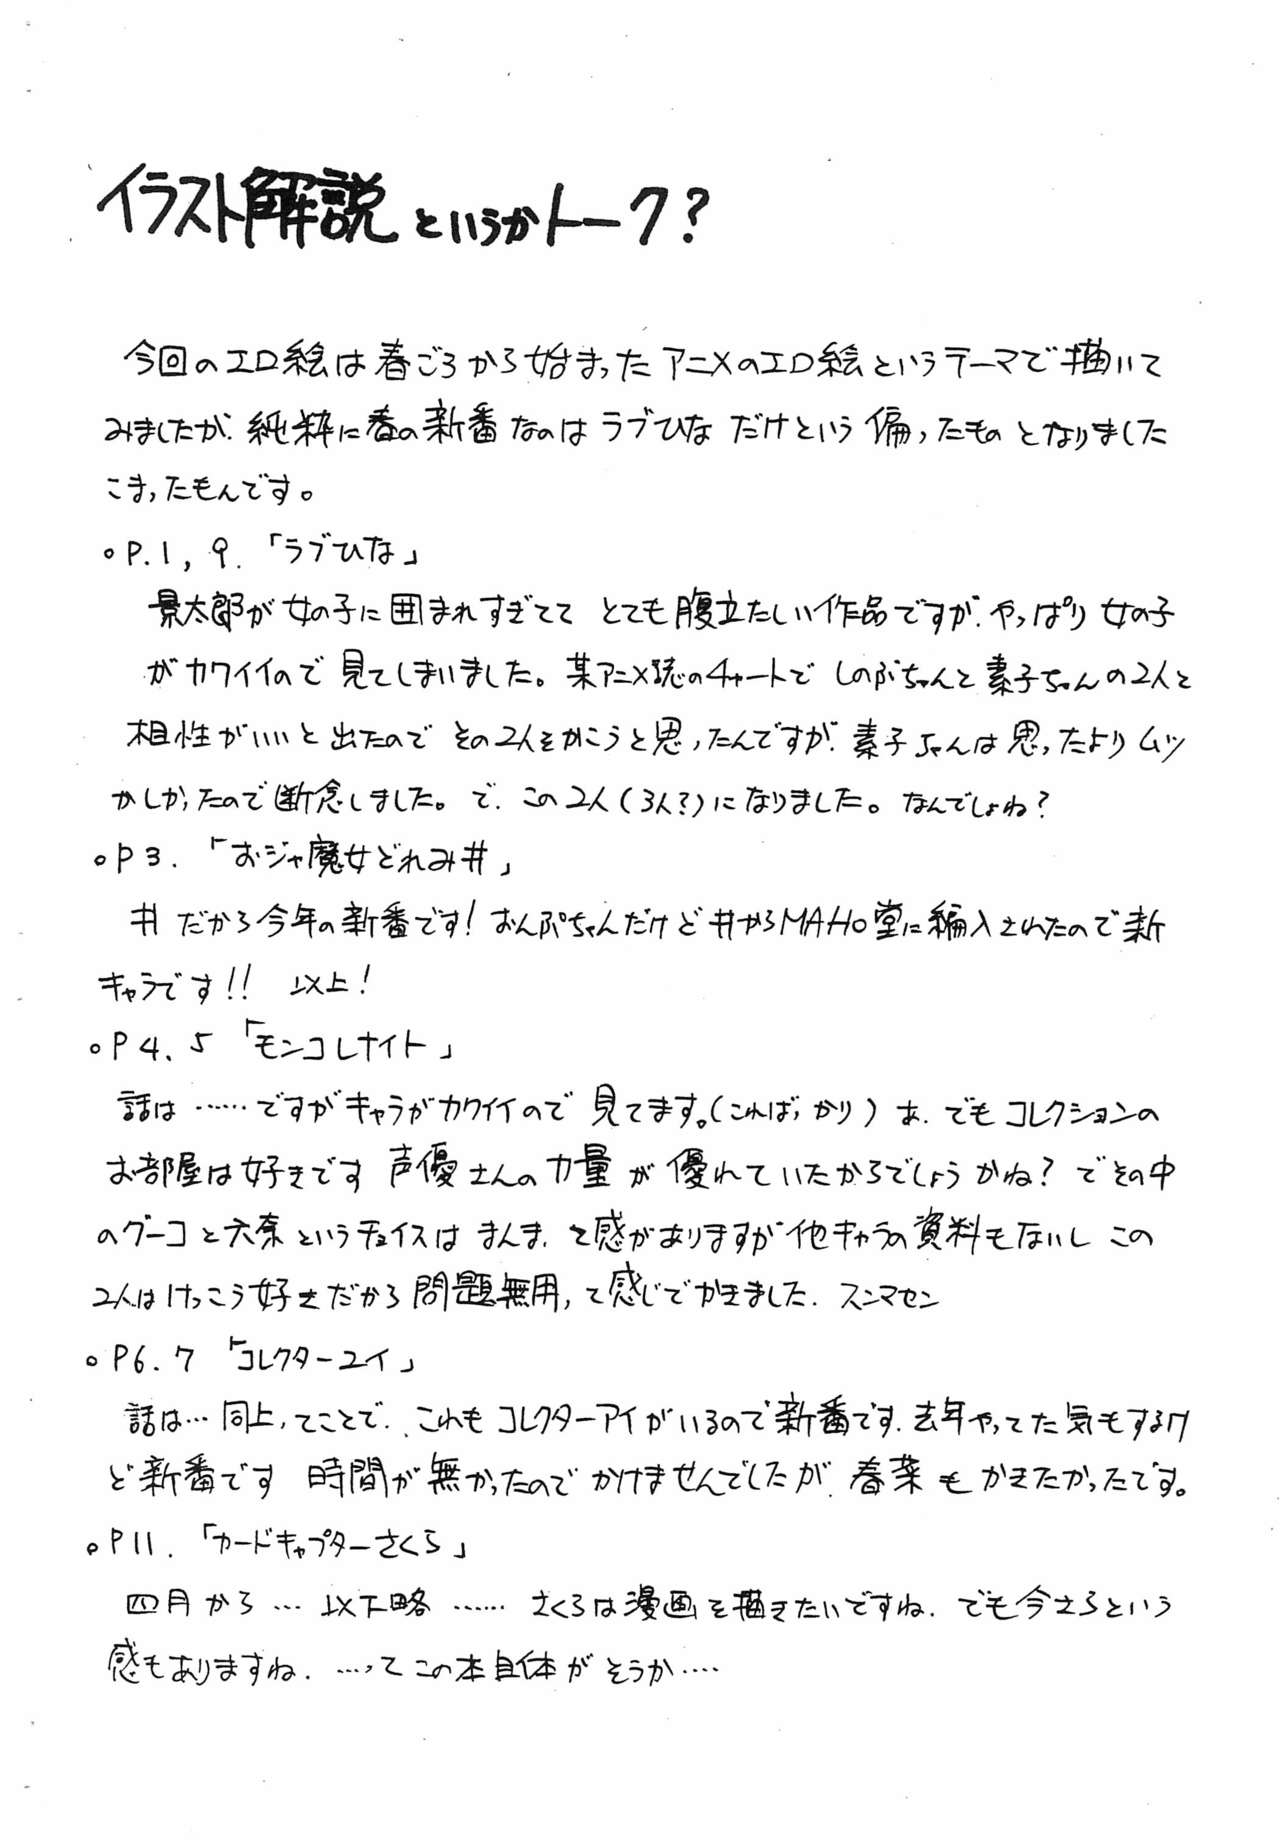 イラスト解説というかトーク?
今回のエロ絵は春ごろから始まったアニメのエロ絵というテーマで描いて
みましたが、純粋に春の新番なのはラブひなだけという偏ったものとなりました
こまったもんです。
○P.1, 9.「ラブひな」
景太郎が女の子に囲まれすぎてて とても腹立たしい作品ですが、やっぱり女の子
がカワイイので見てしまいました。某アニメ誌のチャートで しのぶちゃんと素子ちゃんの2人と
相性がいいと出たので その2人をかこうと思ったんですが、素子ちゃんは思ったよりムツ
かしかったので断念しました。で、この2人(3人?)になりました。なんでしょね?
○P3.「おジャ魔女どれみ#」
#だから今年の新番です!おんぷちゃんだけど#からMAHO堂に編入されたので新
キャラです!! 以上!
○P4、5「モンコレナイト」
話は……ですがキャラがカワイイので 見てます。(こればっかり)あ、でもコレクションの
お部屋は好きです 声優さんの力量が優れていたからでしょうかね?でその中
のグーコと六奈というチョイスは まんまって感がありますが他キャラの資料もないし この
2人はけっこう好きだから問題無用って感じでかきました、スンマセン
○P6.7「コレクターユイ」
話は…同上ってことで、これもコレクターアイがいるので新番です、去年やってた気もするけ
ど新番です 時間が無かったのでかけませんでしたが、春菜もかきたかったです。
○P11.「カードキャプターさくら」
四月から…以下略……さくらは漫画を描きたいですね、でも今さらという
感もありますね、…ってこの本自体がそうか…